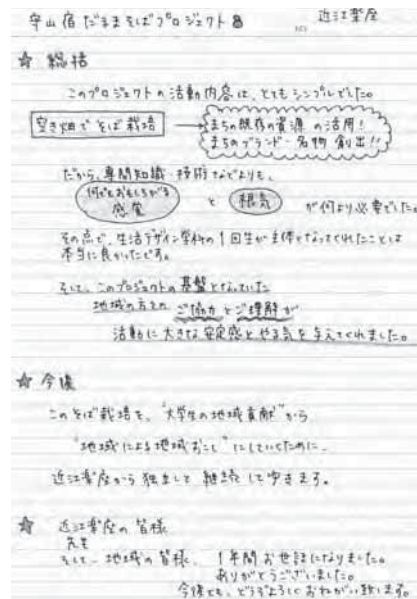 守山宿だるまそばプロジェクト
近江楽座
☆ 総括
このプロジェクトの活動内容は、とてもシンプルでした。
空き畑でそば栽培 → まちの既存の資源の活用!
まちのブランド・名物創出!!
だから、専門知識・技術などよりも、
何でもおもしろがる
感覚 と 根気 が何より必要でした。
その点で、生活デザイン学科の1回生が主体となってくれたことは
本当に良かったです。
そして、このプロジェクトの基盤となっていた
地域の方々の ご協力とご理解が
活動に大きな安定感とやる気を与えてくれました。
☆ 今後
このそば栽培を、"大学生の地域貢献"から
"地域による地域おこし"にしていくために、
近江楽座から独立して継続して中きます。
☆ 近江楽座の皆様
先生
そして、地域の皆様、1年間お世話になりました。
ありがとうございました。
今後とも、どうぞよろしくおねがい致します。